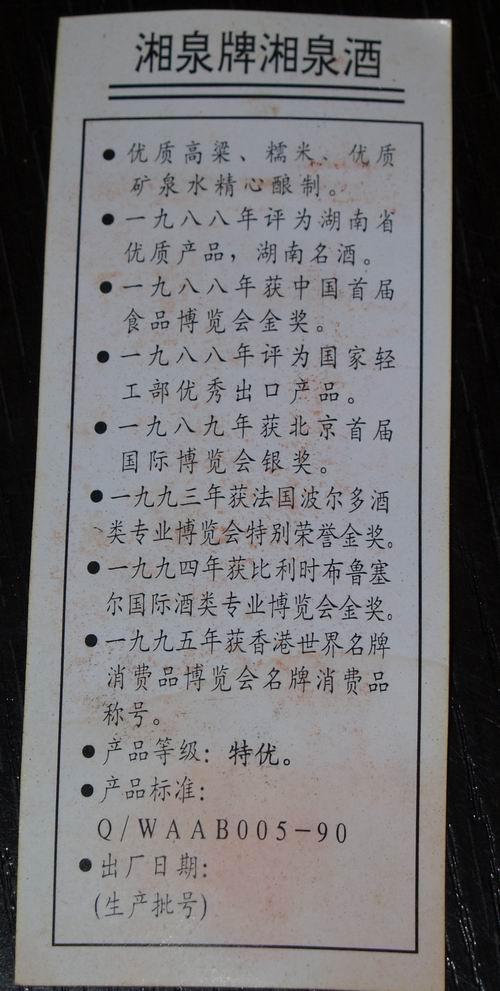 湘泉牌湘泉酒
●优质高粱、糯米、优质
矿泉水精心酿制。
●一九八八年评为湖南省
优质产品,湖南名酒。
●一九八八年获中国首届
食品博览会金奖。
●一九八八年评为国家轻
工部优秀出口产品。
●一九八九年获北京首届
国际博览会银奖。
●一九九三年获法国波尔多酒
类专业博览会特别荣誉金奖。
●一九九四年获比利时布鲁塞
尔国际酒类专业博览会金奖。
●一九九五年获香港世界名牌
消费品博览会名牌消费品
称号。
●产品等级:特优。
●产品标准:
Q/WAAB005-90
●出厂日期:
(生产批号)